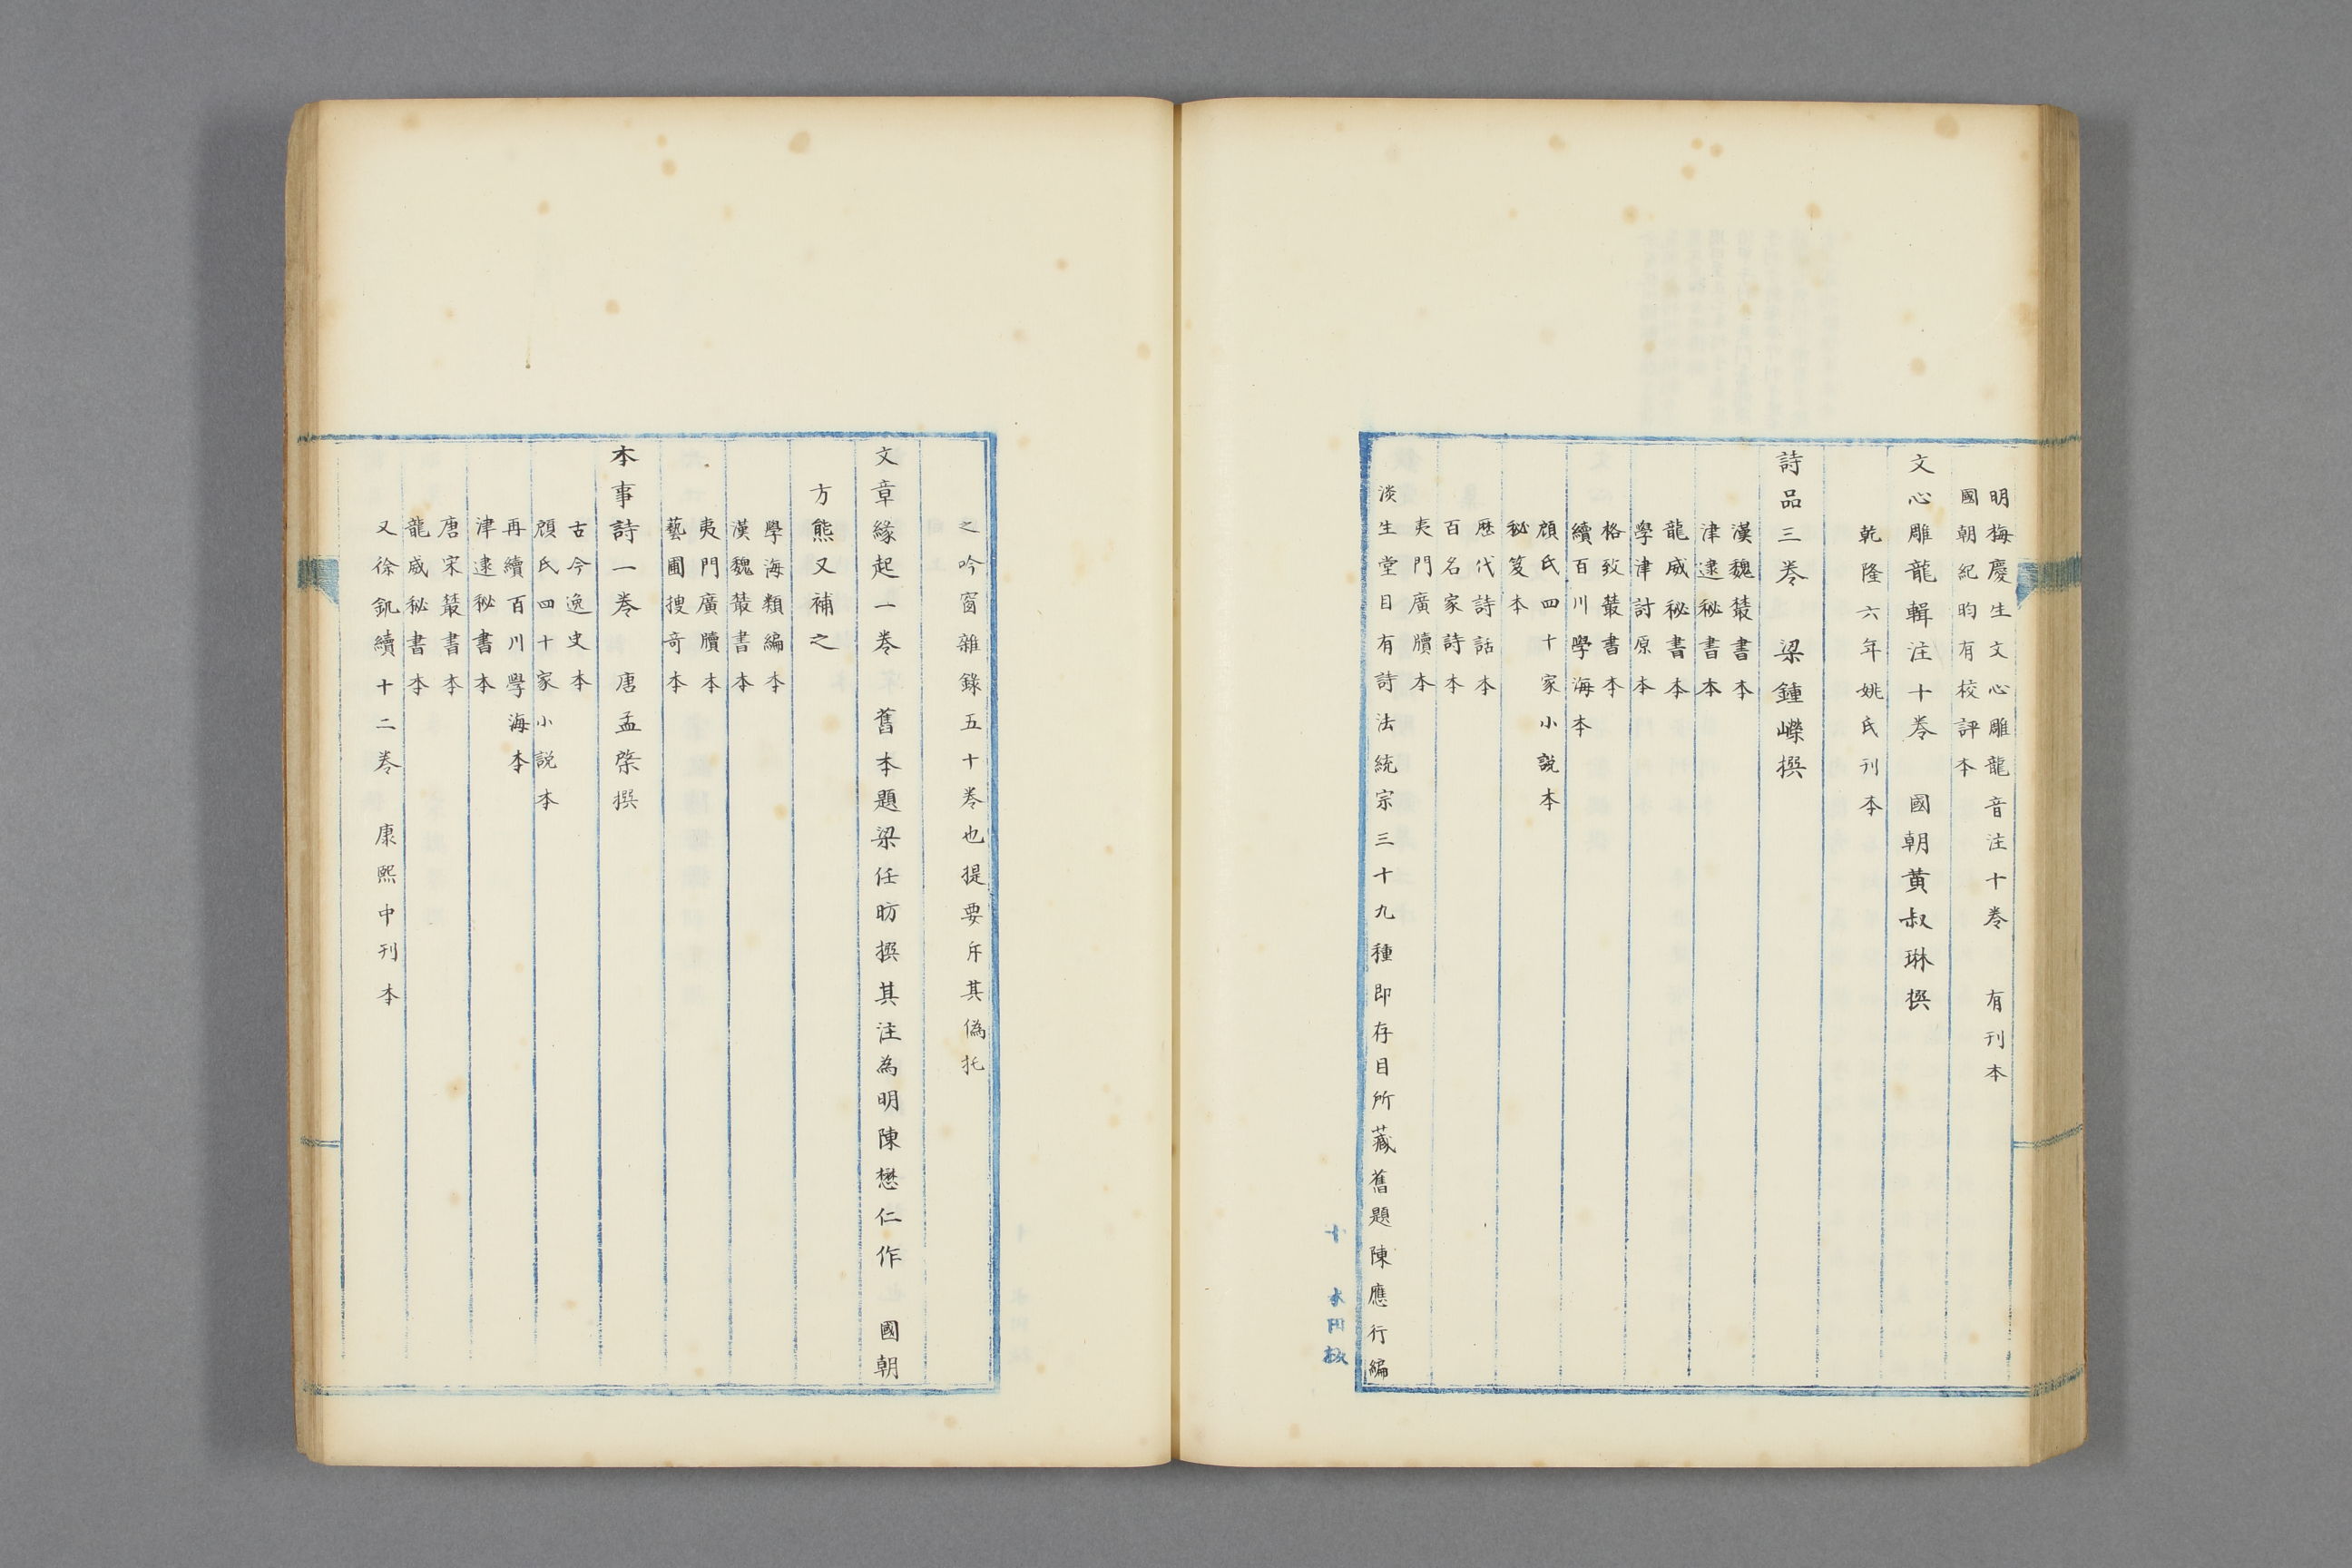 明梅慶生文心雕龍音注十卷　有刊本
國朝紀昀有校評本
文心雕龍輯注十卷　國朝黃叔琳撰
乾隆六年姚氏刊本
詩品三卷　梁鍾嶸撰
漢魏叢書本
津逮秘書本
龍威秘書本
學津討原本
格致叢書本
續百川學海本
顧氏四十家小說本
秘笈本
歷代詩話本
百名家詩本
夷門廣牘本
淡生堂目有詩法統宗三十九種即存目所藏舊題陳應行編
十
本田板
之吟窗雜錄五十卷也提要斥其偽托
文章緣起一卷　舊本題梁任昉撰其注為明陳懋仁作　國朝
方熊又補之
學海類編本
漢魏叢書本
夷門廣牘本
藝圃搜奇本
本事詩一卷　唐孟棨撰
古今逸史本
顧氏四十家小說本
再續百川學海本
津逮秘書本
唐宋叢書本
龍威秘書本
又徐釚續十二卷　康熙中刊本